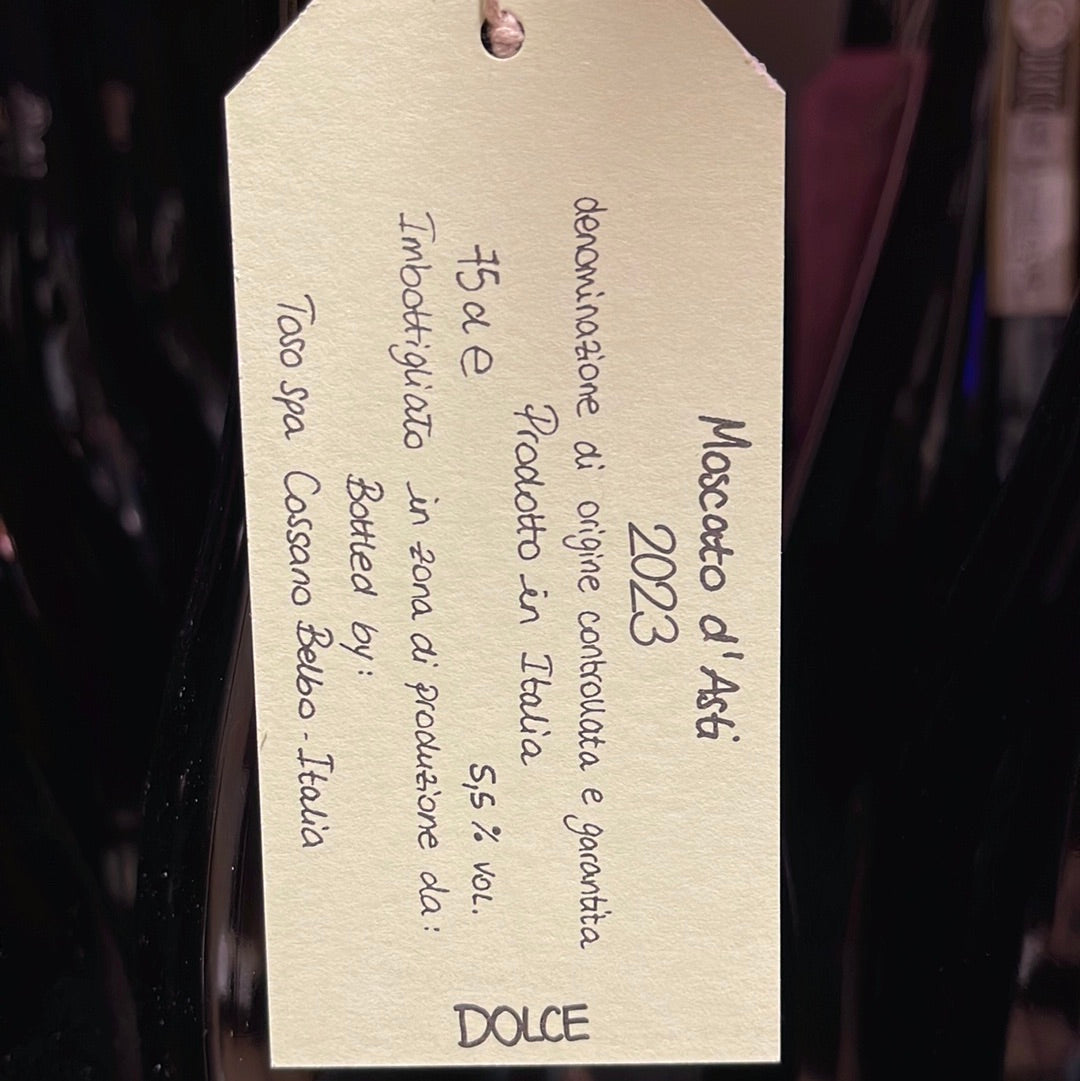 Moscato d'Asti
2023
denominazione di origine controllata e garantita
Prodotto in Italia
75cl e 5,5% VOL.
Imbottigliato in zona di produzione da:
Bottled by:
Toso spa Cossano Belbo - Italia
DOLCE